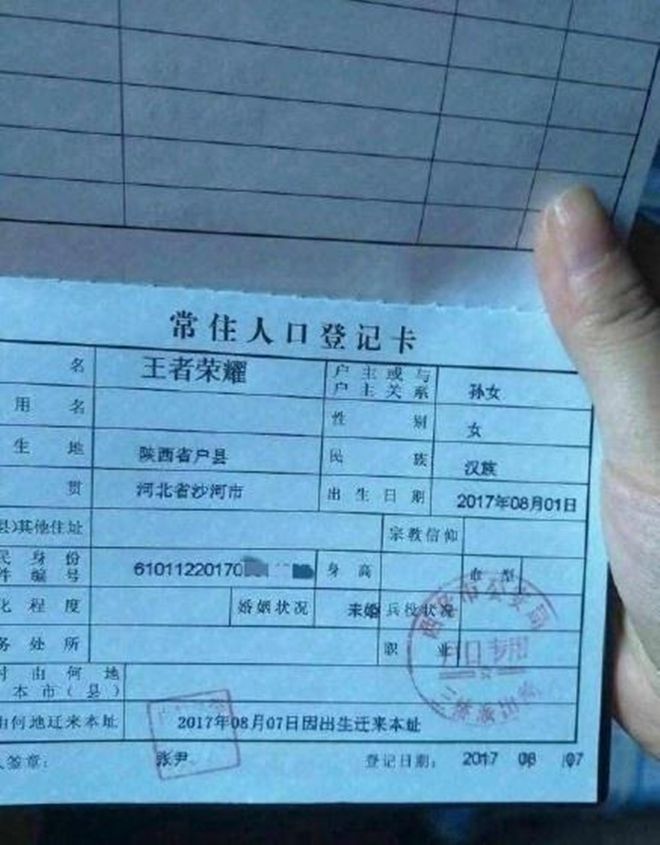 常住人口登记卡
名 王者荣耀 户主或与户主关系 孙女
用名 性别 女
生地 陕西省户县 民族 汉族
贯 河北省沙河市 出生日期 2017年08月01日
县)其他住址 宗教信仰
民身份件编号 61011220170 身高 血型
化程度 婚姻状况 未婚 兵役状况
务处所 职业
时由何地本市(县)
由何地迁来本址 2017年08月07日因出生迁来本址
人签章: 张尹 登记日期: 2017 08 07
西安市公安局
户口专用
三桥派出所